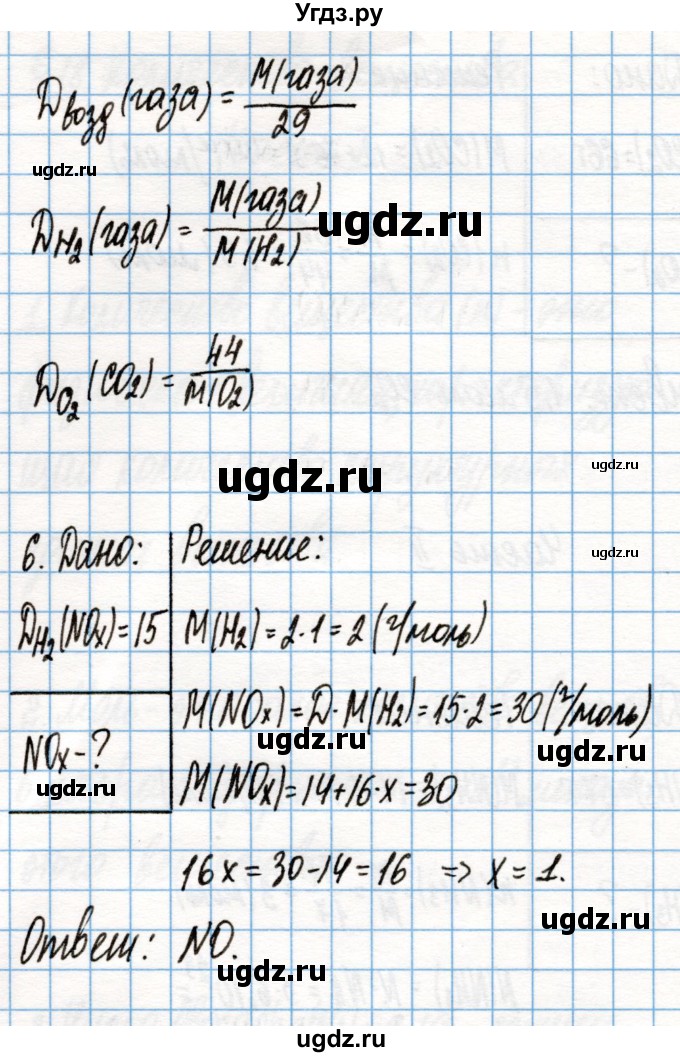 Угдз.ру
Dвозд(газа) = M(газа)/29
ugdz.ru
DH₂(газа) = M(газа)/M(H₂)
ugdz.ru
ugdz.ru
DO₂(CO₂) = 44/M(O₂)
ugdz.ru
ugdz.ru
6. Дано: Решение:
ugdz.ru
DH₂(NOx) = 15 M(H₂) = 2·1 = 2 (г/моль)
NOx - ? M(NOx) = D·M(H₂) = 15·2 = 30 (г/моль)
ugdz.ru
ugdz.ru
M(NOx) = 14 + 16·x = 30
16x = 30 - 14 = 16 => x = 1.
ugdz.ru
Ответ: NO.
ugdz.ru
ugdz.ru
ugdz.ru